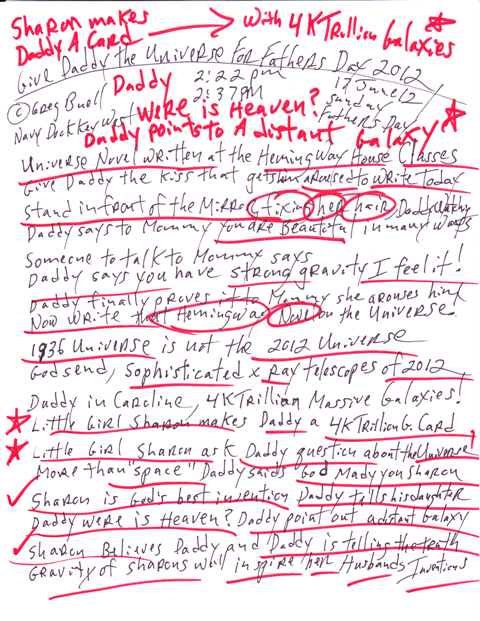 Sharon makes
Daddy A Card → With 4K Trillion Galaxies
Give Daddy the Universe For Fathers Day 2012
© Greg Buell Daddy 2:22 pm 17 June 12
2:37 PM Sunday
Navy Dock Key West Were is Heaven? Father's Day
Daddy points to A distant Galaxy
Universe Novel written at the Hemingway House Classes
Give Daddy the kiss that gets him aroused to write Today
Stand in front of the Mirror fixing her hair, Daddy watching
Daddy says to Mommy you are Beautiful in many ways
Someone to talk to Mommy says
Daddy says you have strong gravity I feel it!
Daddy finally proves it to Mommy she arouses him
Now write that Hemingway Novel on the Universe.
1936 Universe is not the 2012 Universe
God send, sophisticated x ray telescopes of 2012
Daddy in Carcline, 4K Trillian Massive Galaxies!
Little Girl Sharon makes Daddy a 4K Trillion G. Card
Little Girl Sharon ask Daddy question about the Universe
More than "space" Daddy said's God Made you Sharon
Sharon is God's best invention Daddy tells his daughter
Daddy were is Heaven? Daddy point out a distant Galaxy
Sharon Believes Daddy and Daddy is telling the truth
Gravity of Sharons will inspire her Husbands Inventions